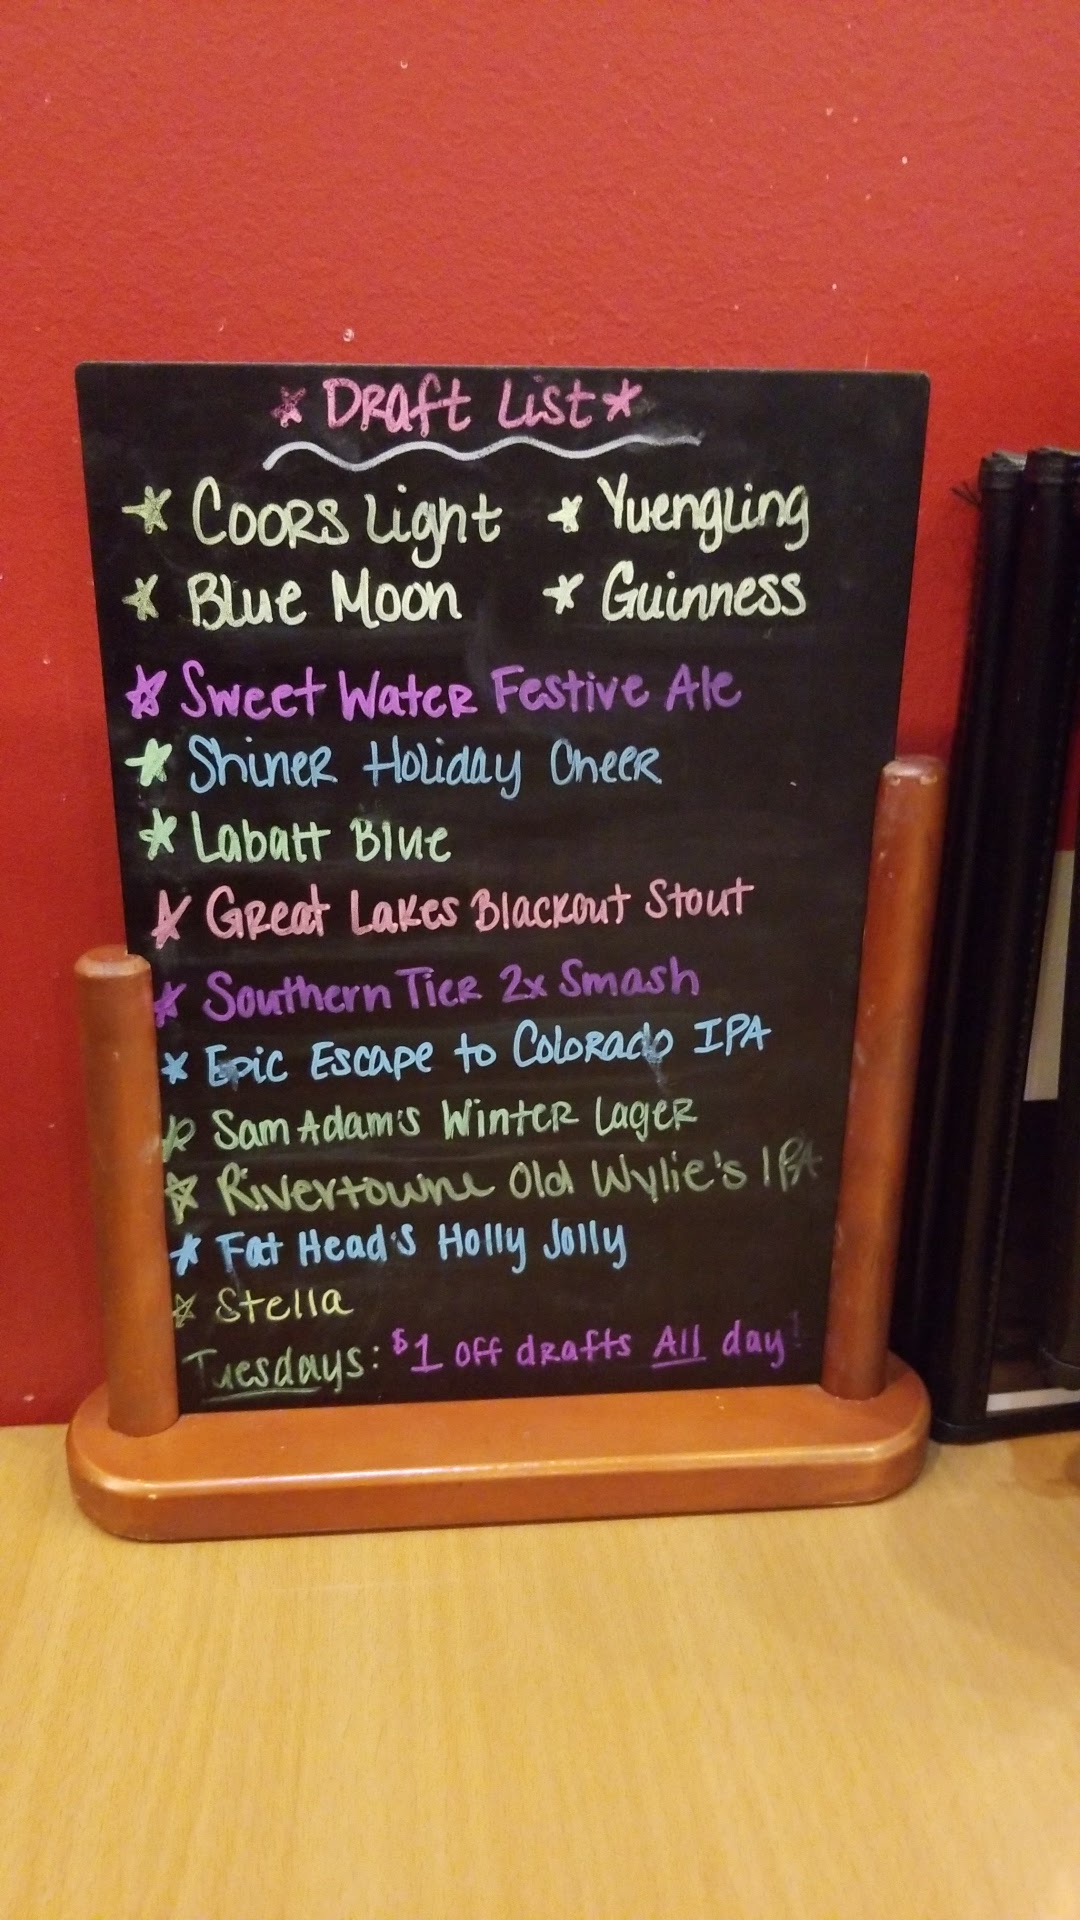 Draft List
Coors Light Yuengling
Blue Moon Guinness
Sweet Water Festive Ale
Shiner Holiday Cheer
Labatt Blue
Great Lakes Blackout Stout
Southern Tier 2x Smash
Epic Escape to Colorado IPA
Sam Adam's Winter Lager
Rivertowne Old Wylie's IPA
Fat Head's Holly Jolly
Stella
Tuesdays: $1 off drafts All day!